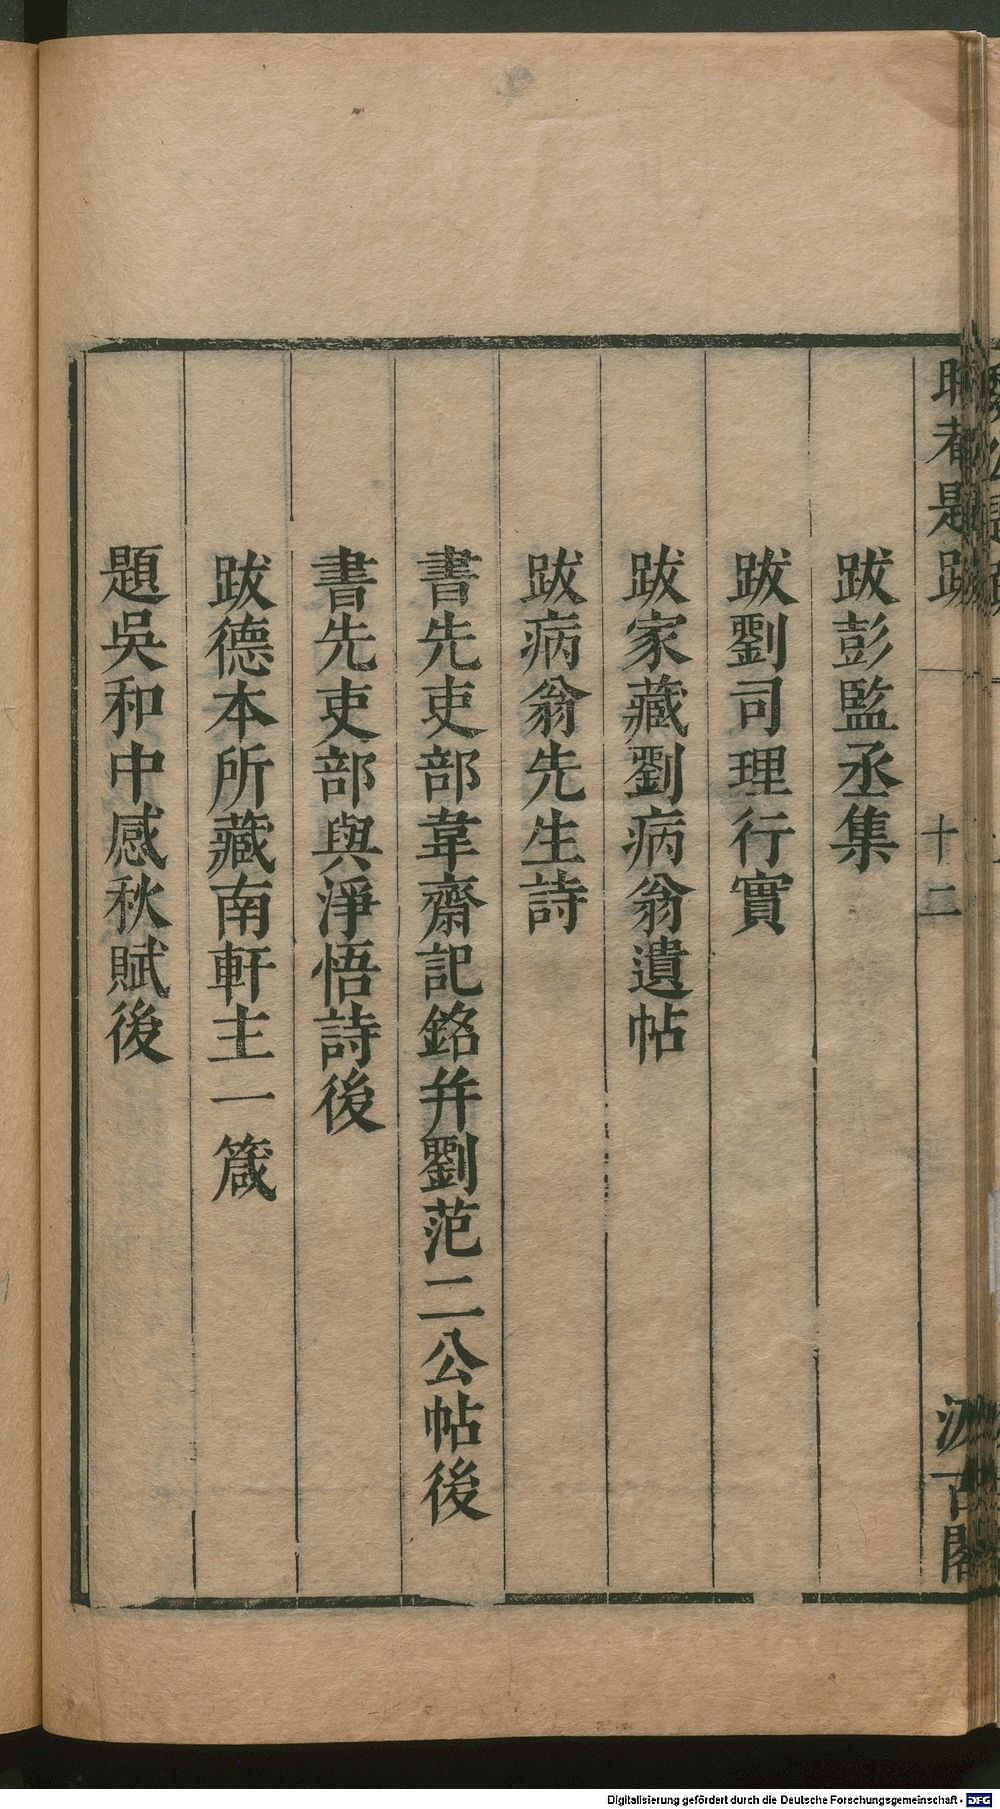 晦菴題跋 十二 汲古閣
跋彭監丞集
跋劉司理行實
跋家藏劉病翁遺帖
跋病翁先生詩
書先吏部韋齋記銘并劉范二公帖後
書先吏部與淨悟詩後
跋德本所藏南軒主一箴
題吳和中感秋賦後
Digitalisierung gefördert durch die Deutsche Forschungsgemeinschaft - DFG